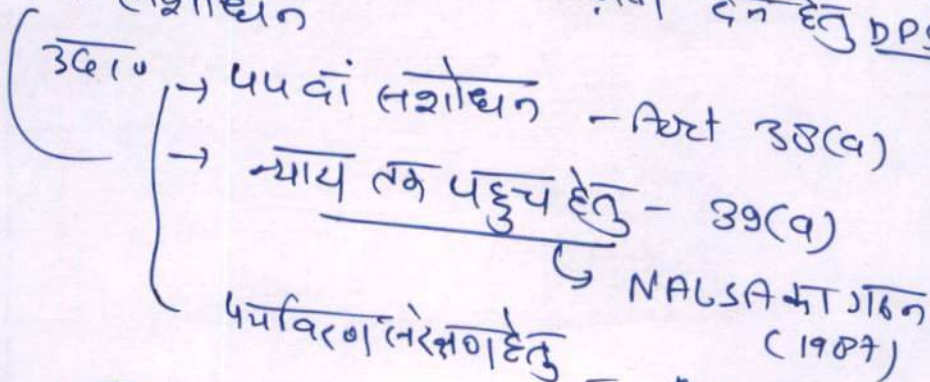 संशोधन देने हेतु DPS
उदा० → 44 वां संशोधन - Art 38(a)
→ न्याय तक पहुच हेतु - 39(a)
↳ NALSA का गठन
(1987)
पर्यावरण संरक्षण हेतु